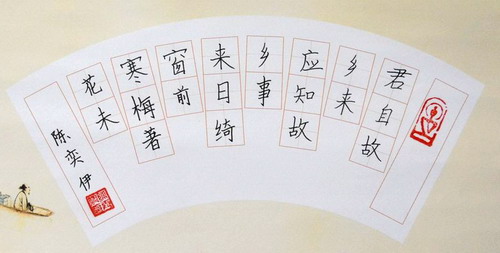 君自故
乡来
应知故
乡事
来日绮
窗前
寒梅著
花未
陈奕伊